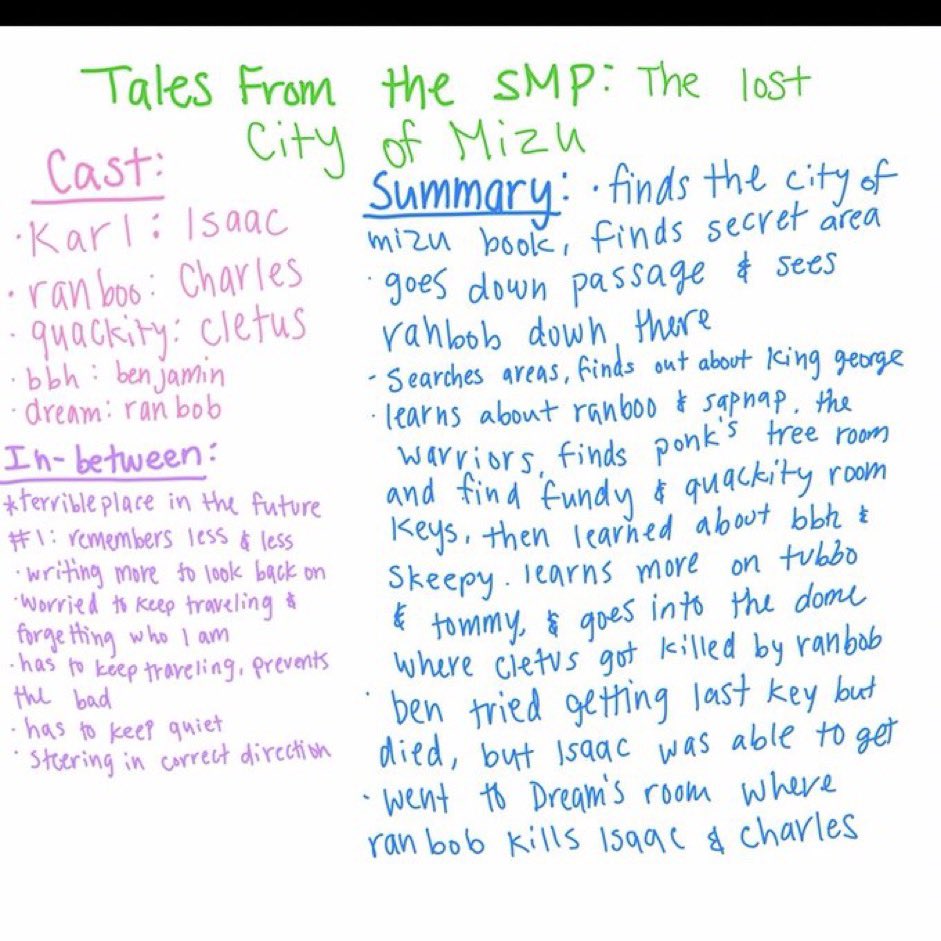 Tales From the SMP: The lost
City of Mizu
Cast:
·Karl: Isaac
·ranboo: Charles
·quackity: Cletus
·bbh: benjamin
·dream: ranbob
In-between:
*terrible place in the future
#1: remembers less & less
·writing more to look back on
·Worried to keep traveling &
forgetting who I am
·has to keep traveling, prevents
the bad
·has to keep quiet
·steering in correct direction
Summary: ·finds the city of
mizu book, finds secret area
·goes down passage & sees
ranbob down there
·Searches areas, finds out about King george
·learns about ranboo & sapnap. the
warriors, finds ponk's tree room
and find fundy & quackity room
Keys, then learned about bbh &
Skeepy. learns more on tubbo
& tommy, & goes into the dome
where Cletus got killed by ranbob
·ben tried getting last key but
died, but Isaac was able to get
·went to Dream's room where
ranbob kills Isaac & Charles